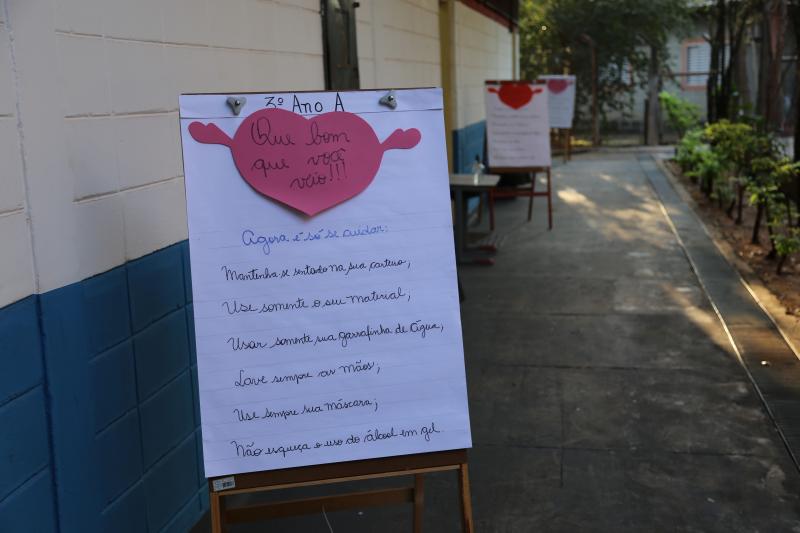 3º Ano A
Que bom
que você
veio!!!
Agora é só se cuidar:
Mantenha-se sentado na sua carteira;
Use somente o seu material;
Usar somente sua garrafinha de água;
Lave sempre as mãos;
Use sempre sua máscara;
Não esqueça o uso do álcool em gel.